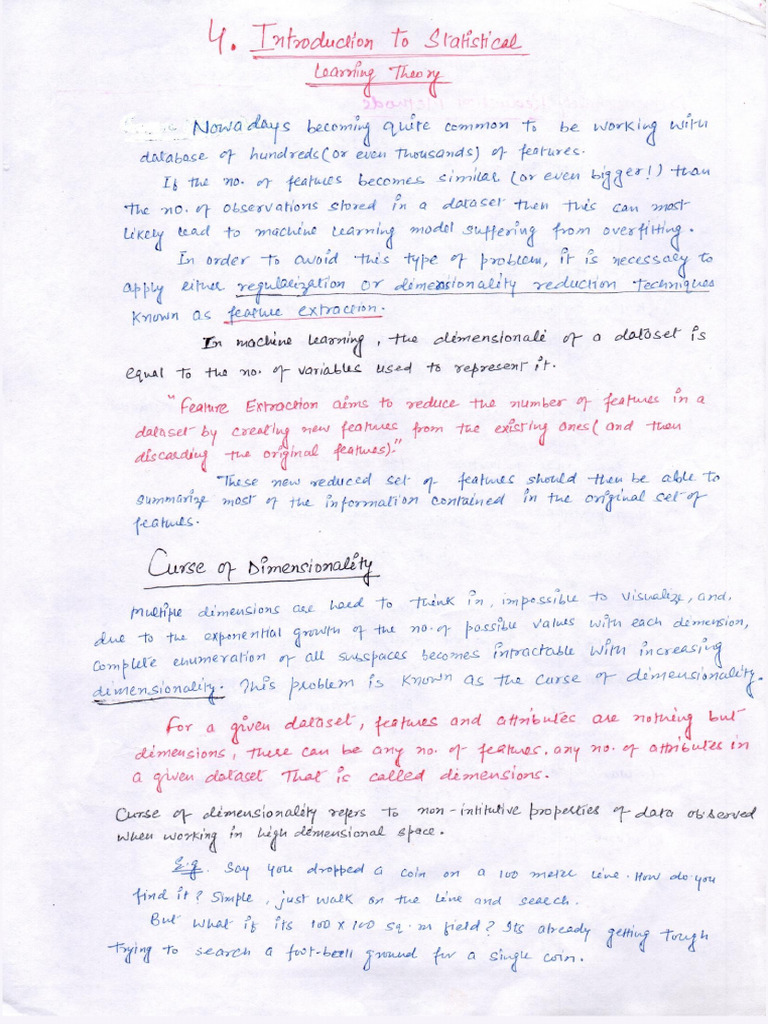 4. Introduction to Statistical
Learning Theory
Nowadays becoming quite common to be working with
database of hundreds (or even thousands) of features.
If the no. of features becomes similar (or even bigger!) than
the no. of observations stored in a dataset then this can most
likely lead to machine learning model suffering from overfitting.
In order to avoid this type of problem, it is necessary to
apply either regularization or dimensionality reduction techniques
known as feature extraction.
In machine learning, the dimensionali of a dataset is
equal to the no. of variables used to represent it.
"Feature Extraction aims to reduce the number of features in a
dataset by creating new features from the existing ones (and then
discarding the original features)."
These new reduced set of features should then be able to
summarize most of the information contained in the original set of
features.
Curse of Dimensionality
Multiple dimensions are hard to think in, impossible to visualize, and,
due to the exponential growth of the no. of possible values with each dimension,
complete enumeration of all subspaces becomes intractable with increasing
dimensionality. This problem is known as the curse of dimensionality.
For a given dataset, features and attributes are nothing but
dimensions, there can be any no. of features. any no. of attributes in
a given dataset that is called dimensions.
Curse of dimensionality refers to non-intitutive properties of data observed
when working in high dimensional space.
E.g. Say you dropped a coin on a 100 metre line. How do you
find it? Simple, just walk on the line and search.
But what if its 100 x 100 sq. m field? Its already getting tough
trying to search a foot-ball ground for a single coin.